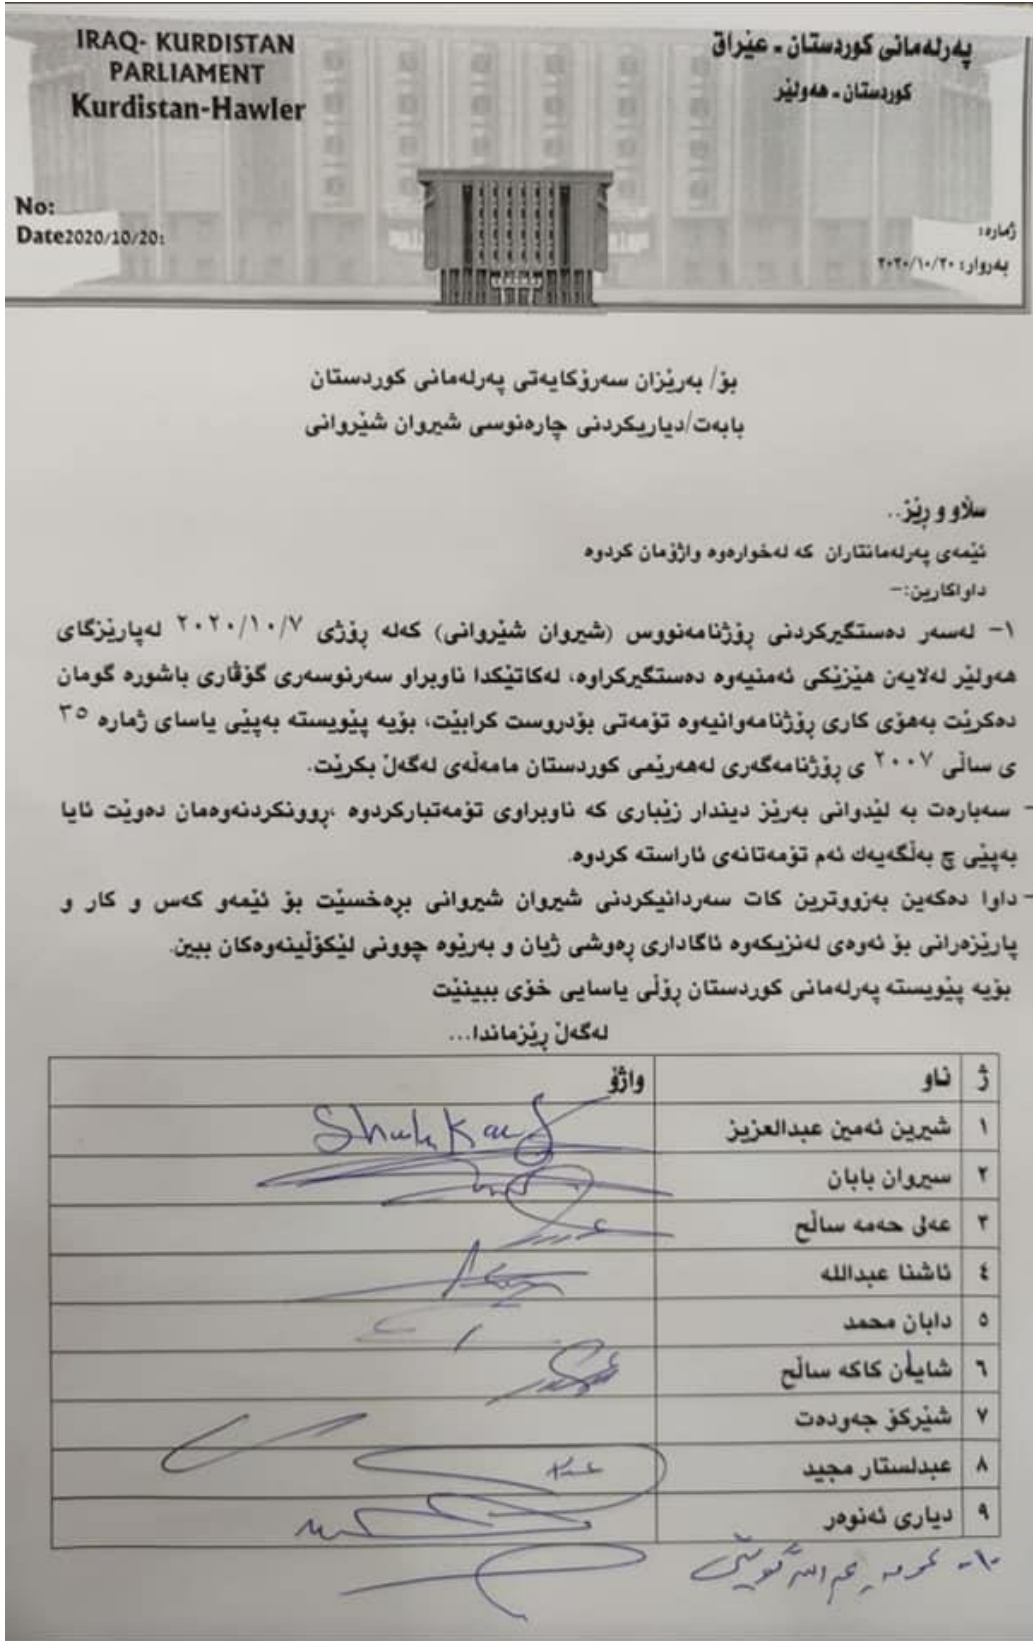 IRAQ- KURDISTAN
PARLIAMENT
Kurdistan-Hawler
پەرلەمانی کوردستان - عێراق
کوردستان - هەولێر
No:
Date2020/10/20:
ژمارە:
بەروار: ٢٠٢٠/١٠/٢٠
بۆ/ بەرێزان سەرۆکایەتی پەرلەمانی کوردستان
بابەت/دیاریکردنی چارەنوسی شیروان شێروانی
سڵاو و رێز..
ئێمەی پەرلەمانتاران کە لەخوارەوە واژۆمان کردوە
داواکارین:-
١- لەسەر دەستگیرکردنی ڕۆژنامەنووس (شیروان شێروانی) کەلە ڕۆژی ٢٠٢٠/١٠/٧ لەپارێزگای
هەولێر لەلایەن هێزێکی ئەمنیەوە دەستگیرکراوە، لەکاتێکدا ناوبراو سەرنوسەری گۆڤاری باشورە گومان
دەکرێت بەهۆی کاری ڕۆژنامەوانیەوە تۆمەتی بۆدروست کرابێت، بۆیە پێویستە بەپێی یاسای ژمارە ٣٥
ی ساڵی ٢٠٠٧ ی ڕۆژنامەگەری لەهەرێمی کوردستان مامەڵەی لەگەڵ بکرێت.
- سەبارەت بە لێدوانی بەرێز دیندار زێباری کە ناوبراوی تۆمەتبارکردوە ،ڕوونکردنەوەمان دەوێت ئایا
بەپێی چ بەڵگەیەك ئەم تۆمەتانەی ئاراستە کردوە.
- داوا دەکەین بەزووترین کات سەردانیکردنی شیروان شیروانی برەخسێت بۆ ئێمەو کەس و کار و
پارێزەرانی بۆ ئەوەی لەنزیکەوە ئاگاداری رەوشی ژیان و بەرێوە چوونی لێکۆڵینەوەکان ببین.
بۆیە پێویستە پەرلەمانی کوردستان ڕۆڵی یاسایی خۆی ببینێت
لەگەڵ ڕێزماندا...
ژ ناو واژۆ
١ شیرین ئەمین عبدالعزیز
٢ سیروان بابان
٣ عەلی حەمە ساڵح
٤ ئاشنا عبدالله
٥ دابان محمد
٦ شایان کاکە ساڵح
٧ شێرکۆ جەودەت
٨ عبدلستار مجید
٩ دیاری ئەنوەر
١٠-